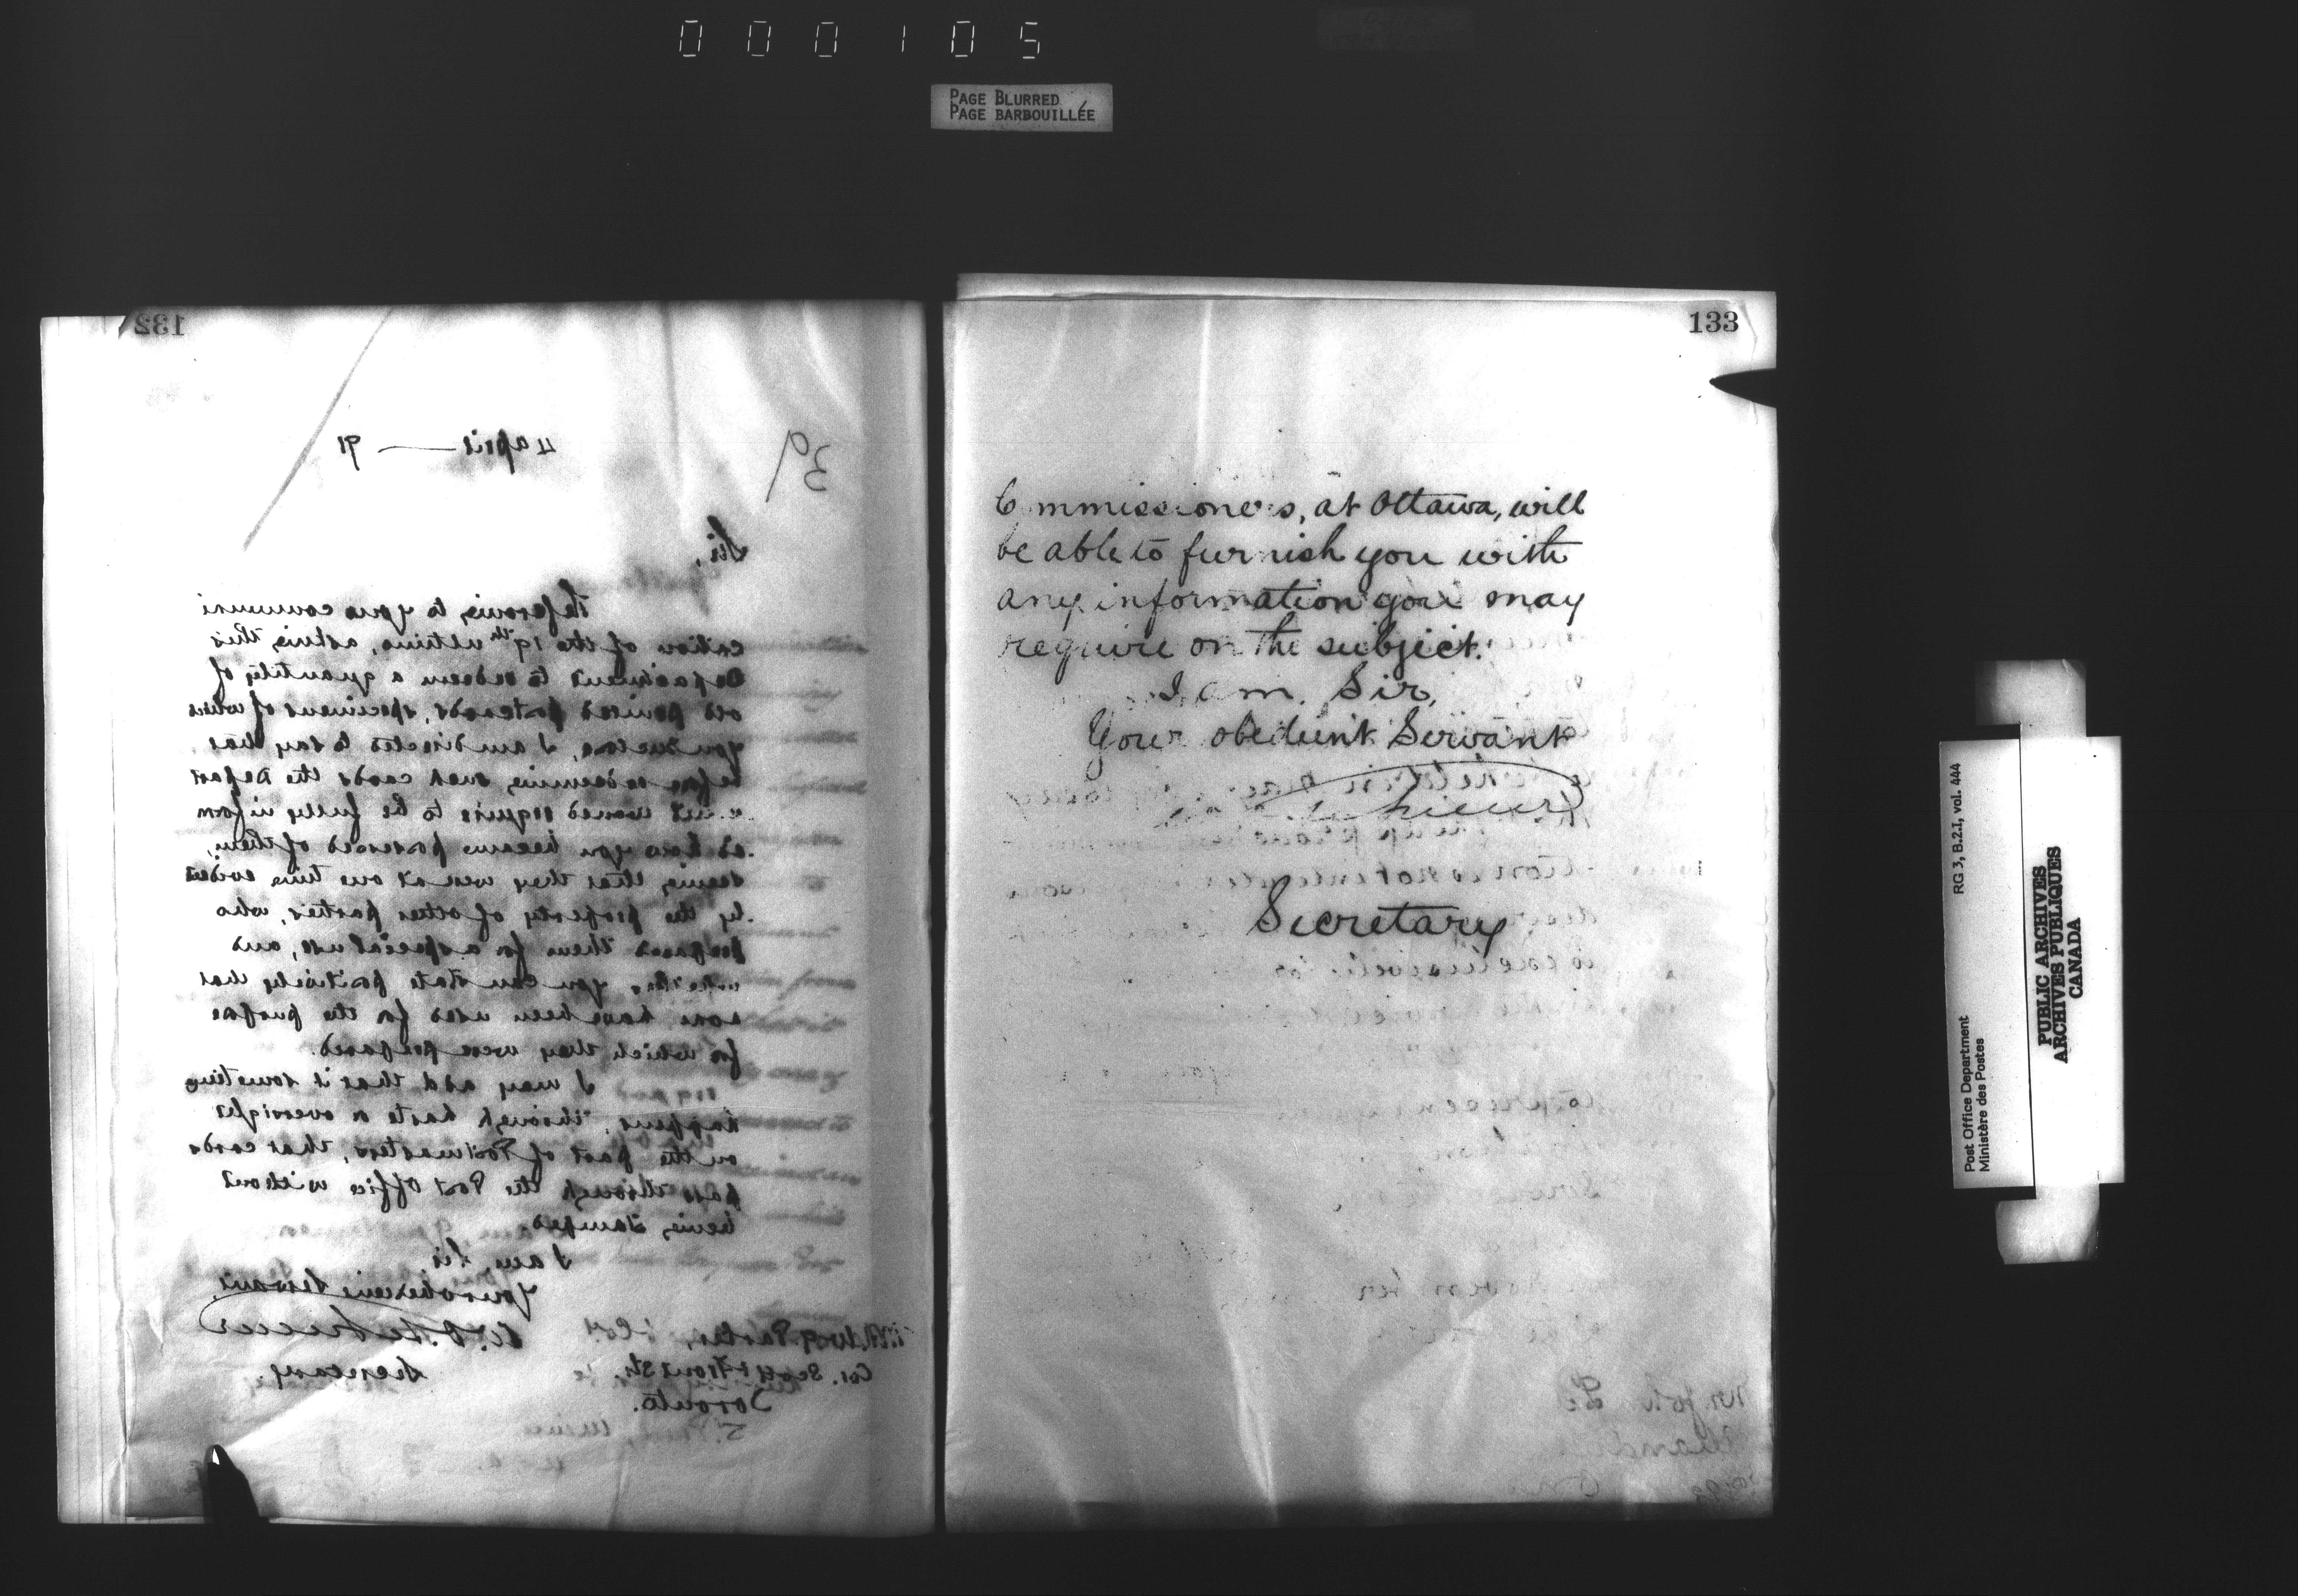 000105
PAGE BLURRED
PAGE BARBOUILLÉE
132
3d/
4 April — 91
Sir,
Referring to your communi
cation of the 19th ultimo, asking this
Department to redeem a quantity of
old printed postcards, specimens of which
you enclose, I am directed to say that
before redeeming such cards the Depart
ment would require to be fully inform
ed how you became possessed of them,
seeing that they were at one time evident
ly the property of other parties, who
prepared them for a special use, and
whether you can state positively that
none have been used for the purpose
for which they were prepared.
I may add that it sometimes
happens, through haste or oversight
on the part of Postmasters, that cards
pass through the Post Office without
being stamped.
I am, Sir,
Your obedient Servant,
W. D. LeSueur
Secretary.
Cor. Scott & Front Sts.
Toronto.
133
Commissioners, at Ottawa, will
be able to furnish you with
any information you may
require on the subject.
I am, Sir,
Your obedient Servant
Secretary
Post Office Department
Ministère des Postes
RG 3, B.2.I, vol. 444
PUBLIC ARCHIVES
ARCHIVES PUBLIQUES
CANADA